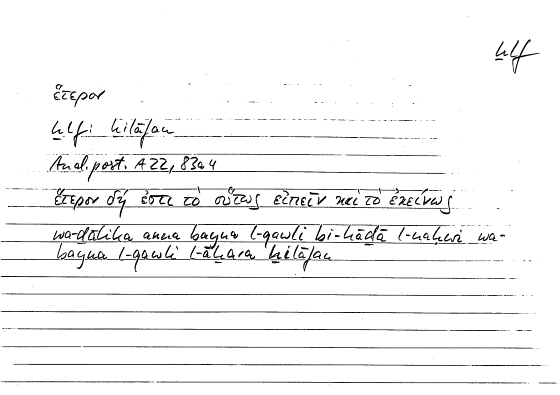 ḫlf
ἕτερον
ḫlf: ḫilāfan
Anal. post. A 22, 83a4
ἕτερον δή ἐστι τὸ οὕτως εἰπεῖν καὶ τὸ ἐκείνως
wa-ḏālika anna bayna l-qawli bi-hāḏā l-naḥwi wa-
bayna l-qawli l-āḫara ḫilāfan